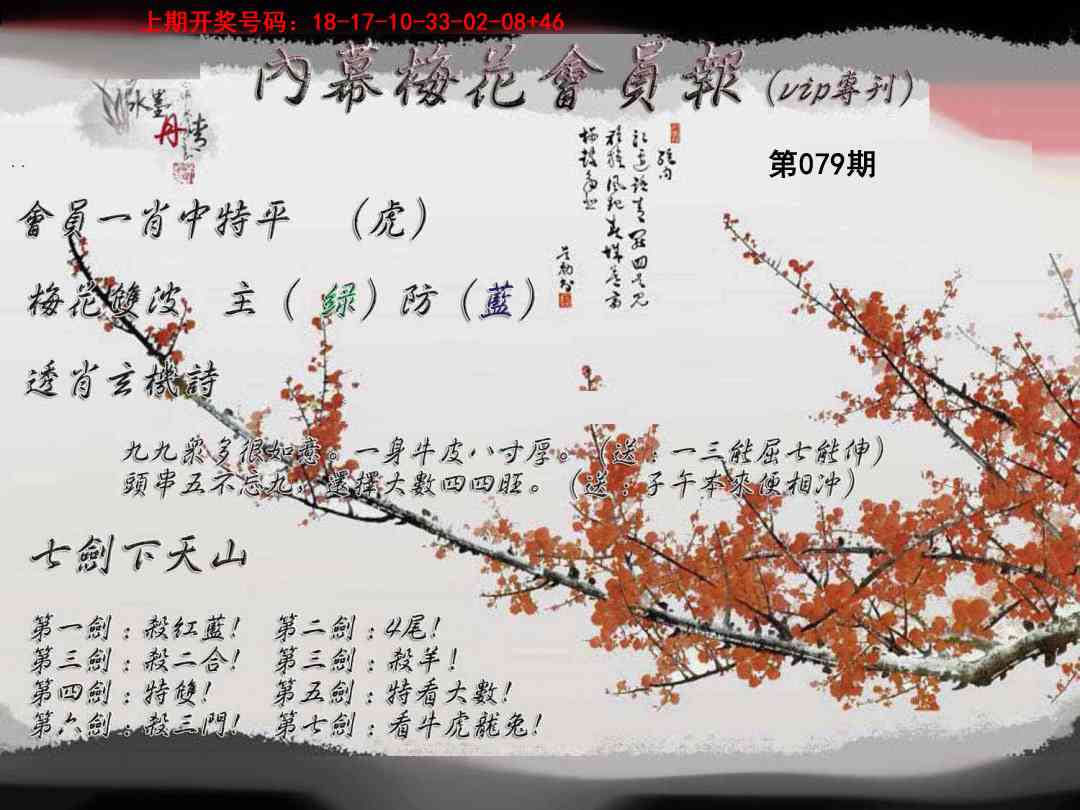 上期开奖号码：18-17-10-33-02-08+46
內幕梅花會員報（vip專刊）
水墨
丹青
第079期
會員一肖中特平　（虎）
梅花雙波　主（綠）防（藍）
透肖玄機詩
九九眾多很如意。一身牛皮八寸厚。（送：一三能屈七能伸）
頭串五不忘九，選擇大數四四旺。（送：子午本來便相冲）
七劍下天山
第一劍：殺紅藍！　第二劍：4尾！
第三劍：殺二合！　第三劍：殺羊！
第四劍：特雙！　第五劍：特看大數！
第六劍：殺三門！　第七劍：看牛虎龍兔！